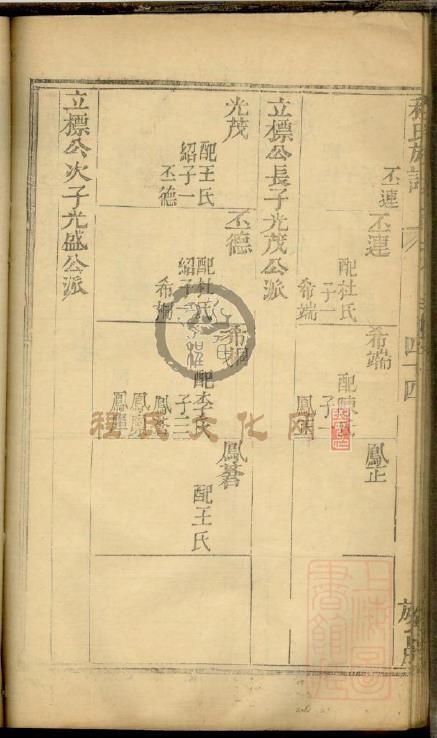 程氏族譜
四十四
丕連
丕連
配杜氏
子一
希端
希端
子一
鳳正
立標公長子光茂公派
光茂
配王氏
紹子一
丕德
丕德
配杜氏
紹子一
配李氏
子三
鳳碧
配王氏
立標公次子光盛公派
程氏文化网
上海圖書館藏